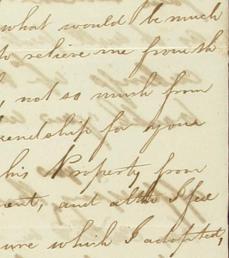 what would be much
to relieve me from th
, not so much from
iendship for your
his Property from
ent, and altho I fee
ure which I adopted,